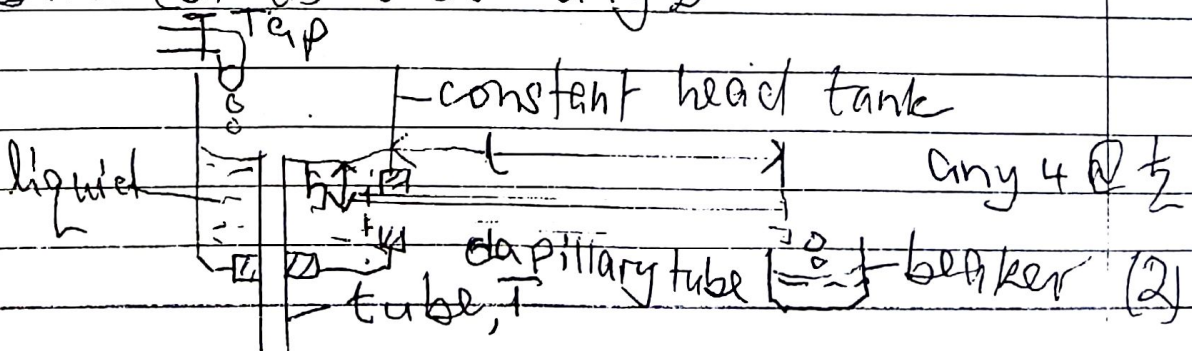 Tap
constant head tank
liquid
l
h
any 4 @ ½
capillary tube
beaker (2)
tube, T